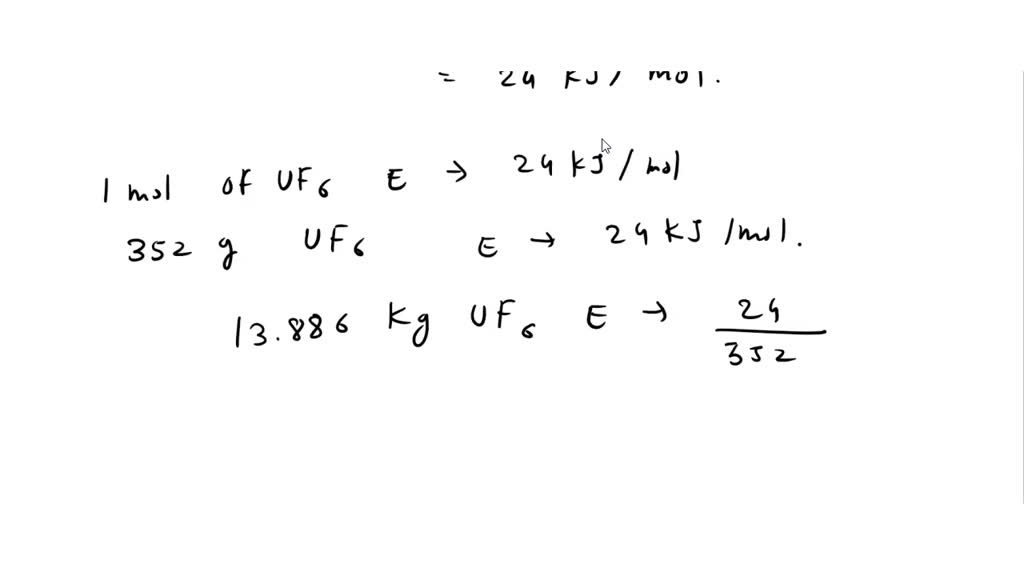 = 24 kJ / mol.
1 mol of UF6 E → 24 kJ / mol
352 g UF6 E → 24 KJ /mol.
13.886 Kg UF6 E → 24
352